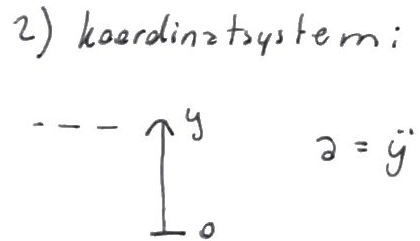 2) koordinatsystem:
y
a = ÿ
0